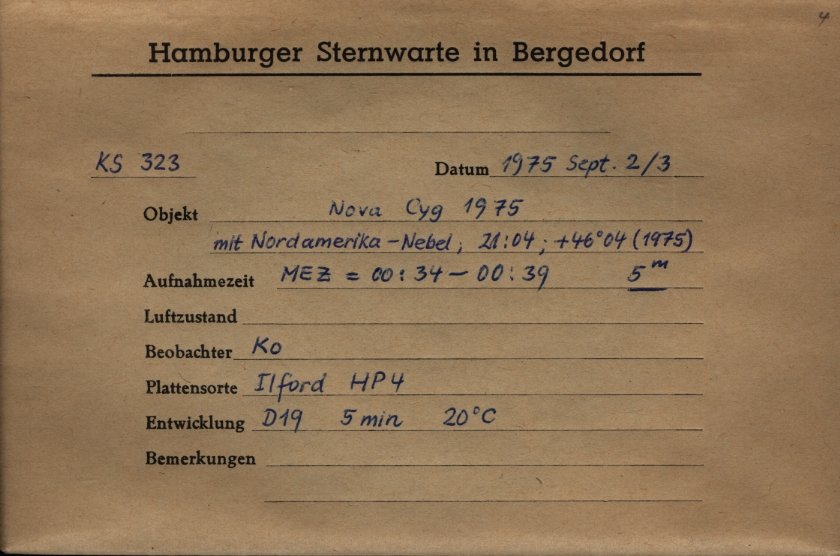 4
Hamburger Sternwarte in Bergedorf
KS 323 Datum 1975 Sept. 2/3
Objekt Nova Cyg 1975
mit Nordamerika-Nebel; 21:04; +46°04 (1975)
Aufnahmezeit MEZ = 00:34 - 00:39 5ᵐ
Luftzustand
Beobachter Ko
Plattensorte Ilford HP4
Entwicklung D19 5 min 20°C
Bemerkungen